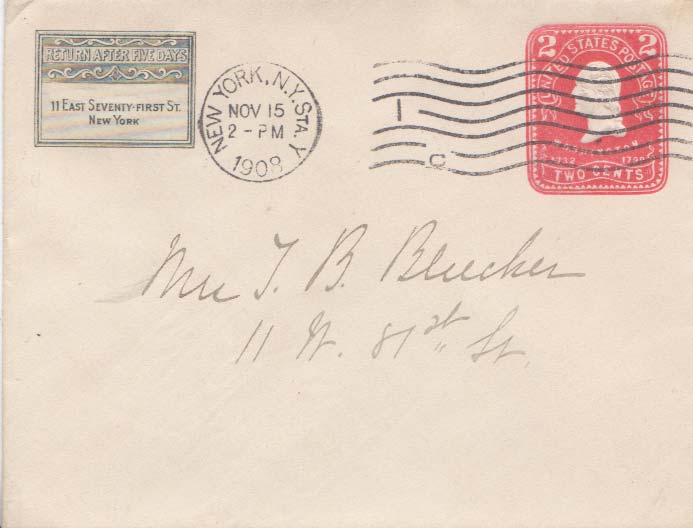 RETURN AFTER FIVE DAYS
11 EAST SEVENTY-FIRST ST.
NEW YORK
NEW YORK, N.Y. STA. Y
NOV 15
2 - PM
1908
1
C
2 UNITED STATES POSTAGE 2
WASHINGTON
1732 1799
TWO CENTS
T. B. Bleecker
11 W. 81st St.